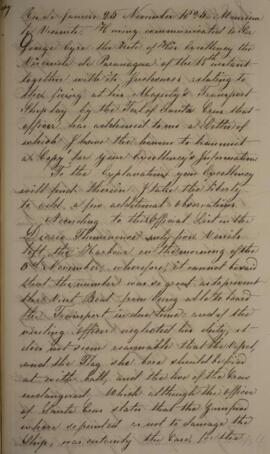 Rio de Janeiro 24 November 1824. Monsieur
le Vicomte. Having communicated to Sir
George Eyre the Note of His Excellency the
Viscount de Paranagua of the 18th instant
together with its Inclosures relating to
Shots firing at his Majesty's Transport
Ship day by the Fort of Santa Cruz that
officer has addressed to me a Letter of
which I have the honor to transmit
a Copy for your Excellency's Information
To the Explanations your Excellency
will find therein I take the liberty
to add a few additional observations.
According to the Official List in the
Diario Fluminense only four Vessels
left the Harbour in the morning of the
6th November, wherefore, it cannot be said
that the number was so great as to prevent
the Visit Boat from being able to board
the Transport in due time and if the
visiting officer neglected his duty, it
does not seem reasonable that the Vessel,
and the Flag she bore should be fired
at with ball, and the lives of the Crew
endangered. Which although the officer
of Santa Cruz states that the Gunfire
where so pointed as not to damage the
Ship, was certainly the Case, for the